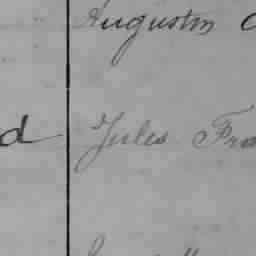 Augustin
d Jules Fra